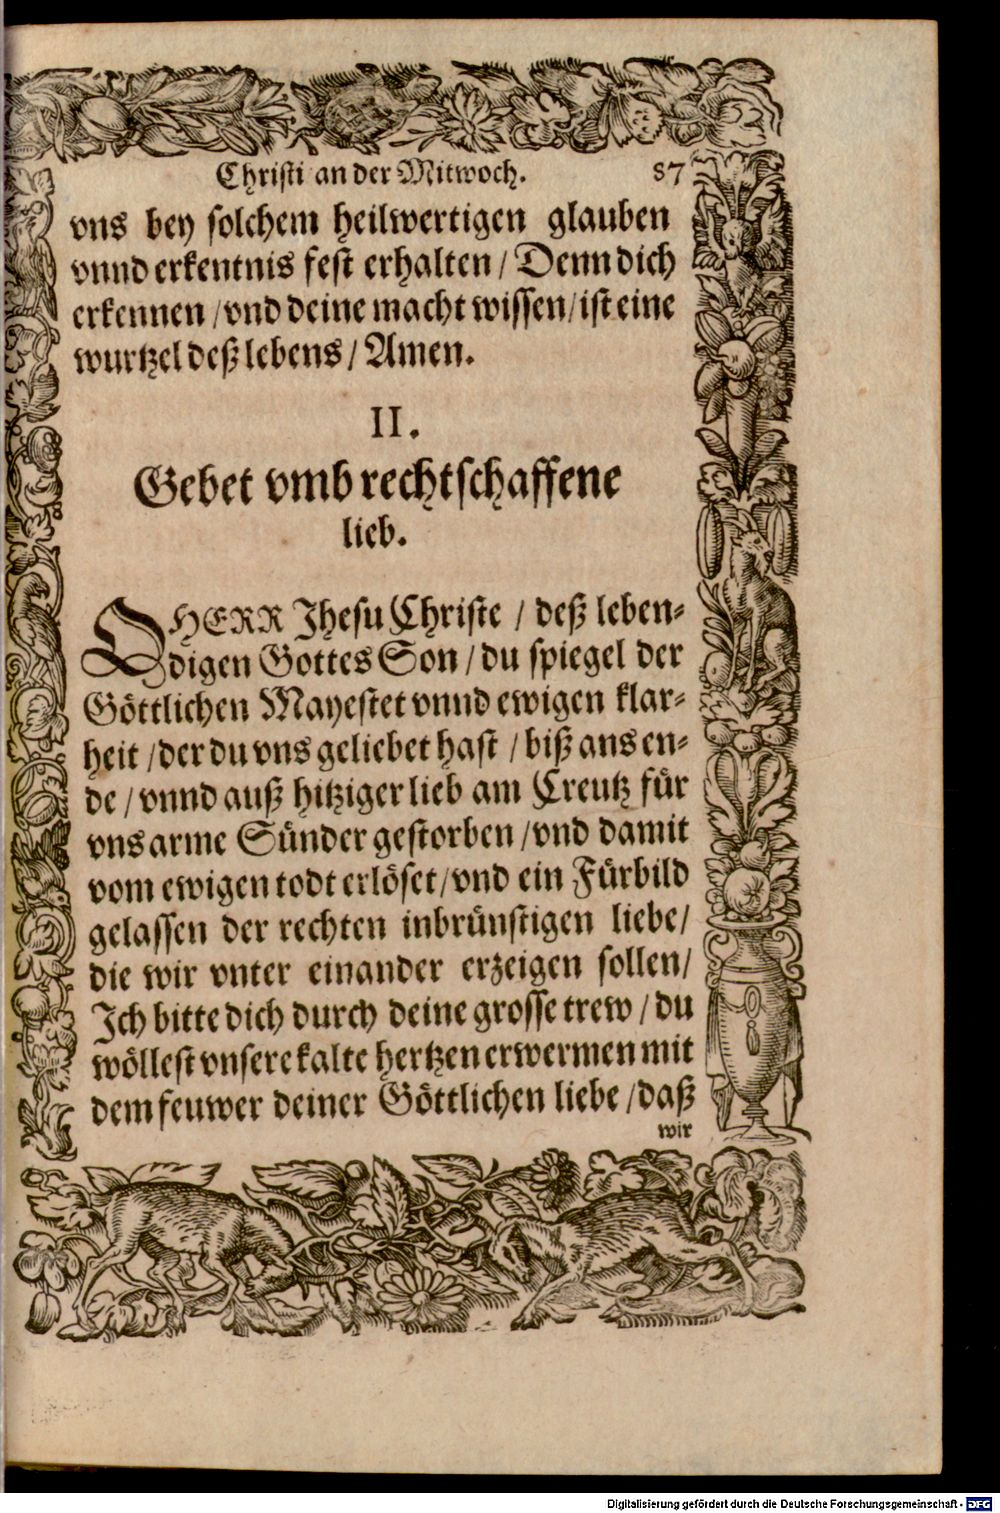 Christi an der Mitwoch. 87
vns bey solchem heilwertigen glauben
vnnd erkentnis fest erhalten / Denn dich
erkennen / vnd deine macht wissen / ist eine
wurtzel deß lebens / Amen.
II.
Gebet vmb rechtschaffene
lieb.
O HERR Jhesu Christe / deß leben-
digen Gottes Son / du spiegel der
Göttlichen Mayestet vnnd ewigen klar-
heit / der du vns geliebet hast / biß ans en-
de / vnnd auß hitziger lieb am Creutz für
vns arme Sünder gestorben / vnd damit
vom ewigen todt erlöset / vnd ein Fürbild
gelassen der rechten inbrünstigen liebe /
die wir vnter einander erzeigen sollen /
Ich bitte dich durch deine grosse trew / du
wöllest vnsere kalte hertzen erwermen mit
dem feuwer deiner Göttlichen liebe / daß
wir
Digitalisierung gefördert durch die Deutsche Forschungsgemeinschaft - DFG